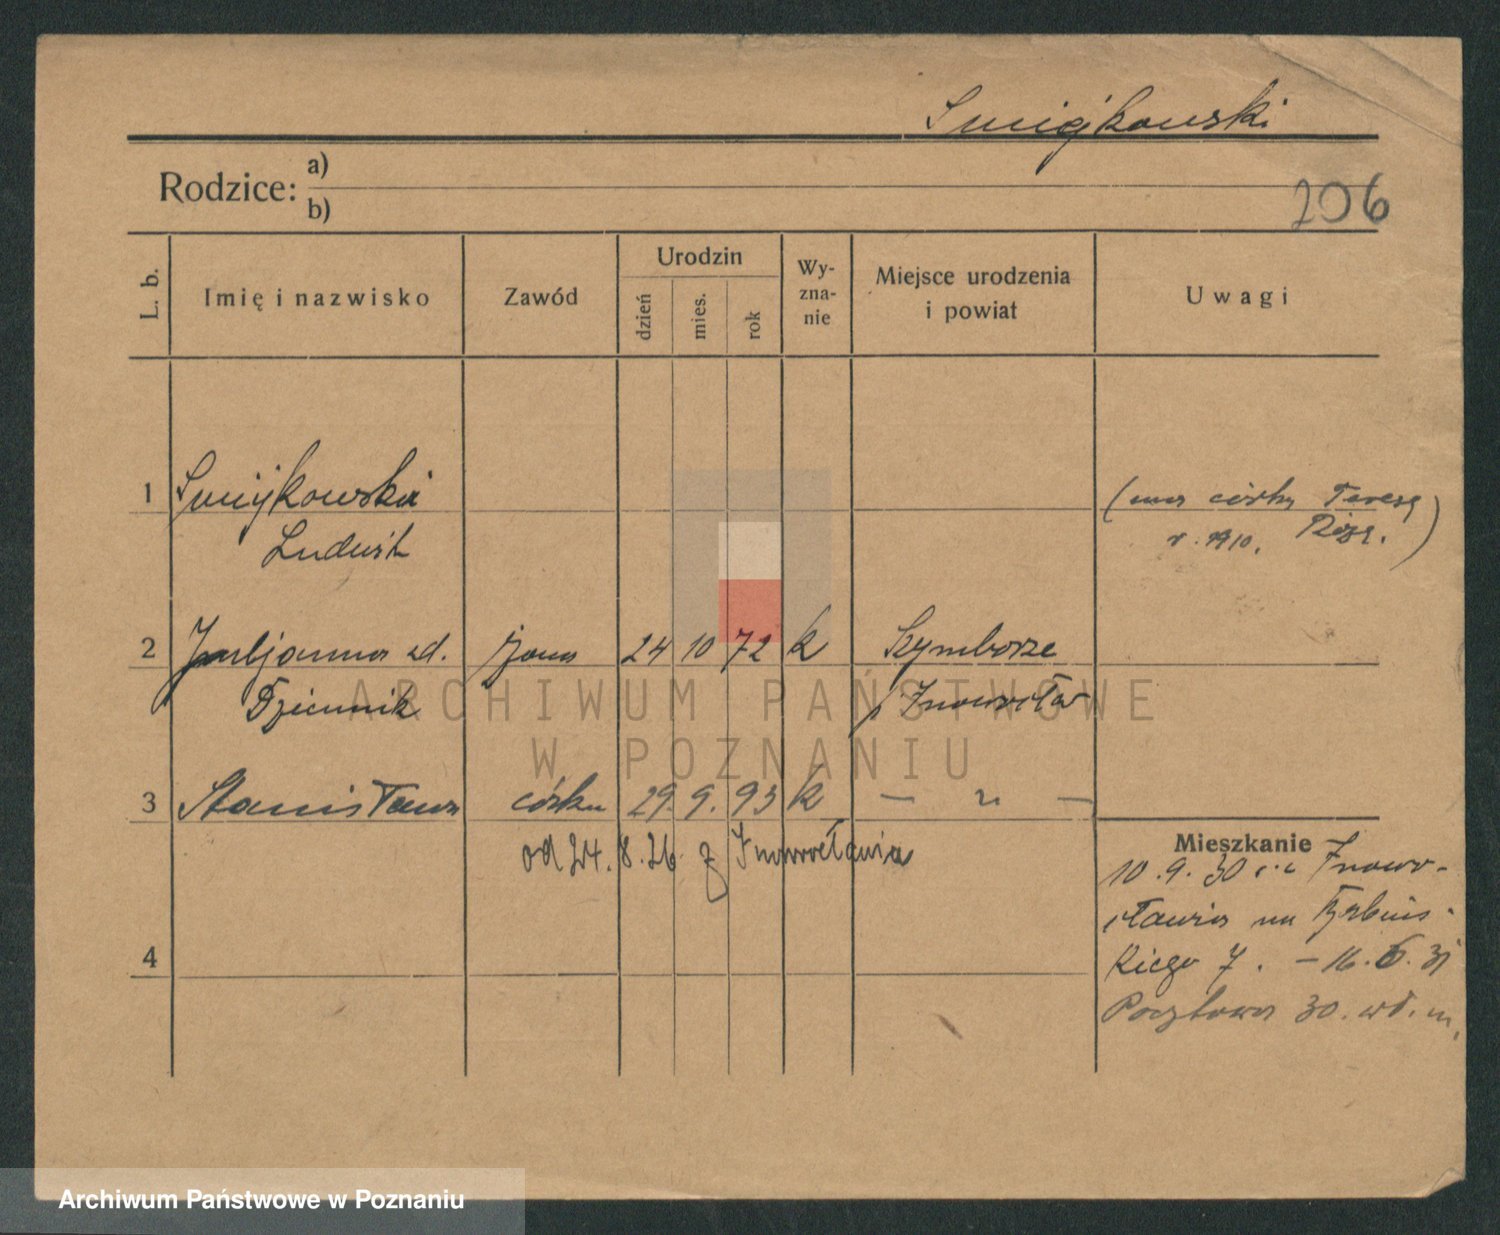 Smigkowski
Rodzice: a)
b)
206
L. b.
Imię i nazwisko
Zawód
Urodzin
dzień
mies.
rok
Wy-
zna-
nie
Miejsce urodzenia
i powiat
Uwagi
1
Ludwik
córkę Teresę
r. 1910. Różę.
2 Juljanna zd. żona 24 10 72 k Szymborze
Dziennik Inowrocław
3 Stanisława córka 29. 9. 93 k — " —
od 24. 8. 26 z Inowrocławia
Mieszkanie
10. 9. 30 Inowro-
cławia na
kiego 7. – 16. 6. 31
Pocztowa 30. wł. m.
4
ARCHIWUM PAŃSTWOWE
W POZNANIU
Archiwum Państwowe w Poznaniu